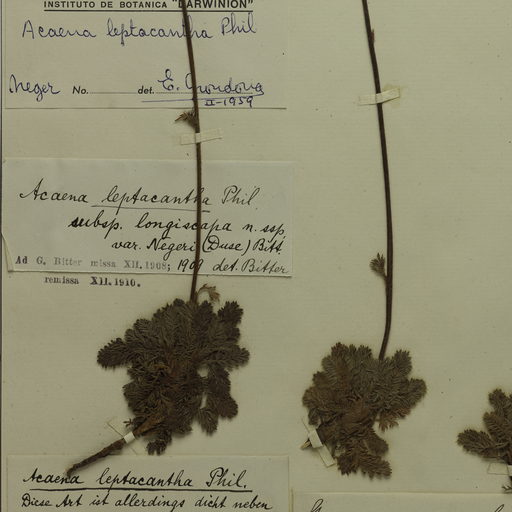 INSTITUTO DE BOTANICA "DARWINION"
Acaena leptacantha Phil
Neger No. det. E. Grondona
II-1959
Acaena leptacantha Phil.
subsp. longiscapa n. ssp,
var. Negeri (Duse) Bitt.
Ad G. Bitter missa XII. 1908; 1909 det. Bitter
remissa XII. 1910.
Acaena leptacantha Phil.
Diese Art ist allerdings dicht neben